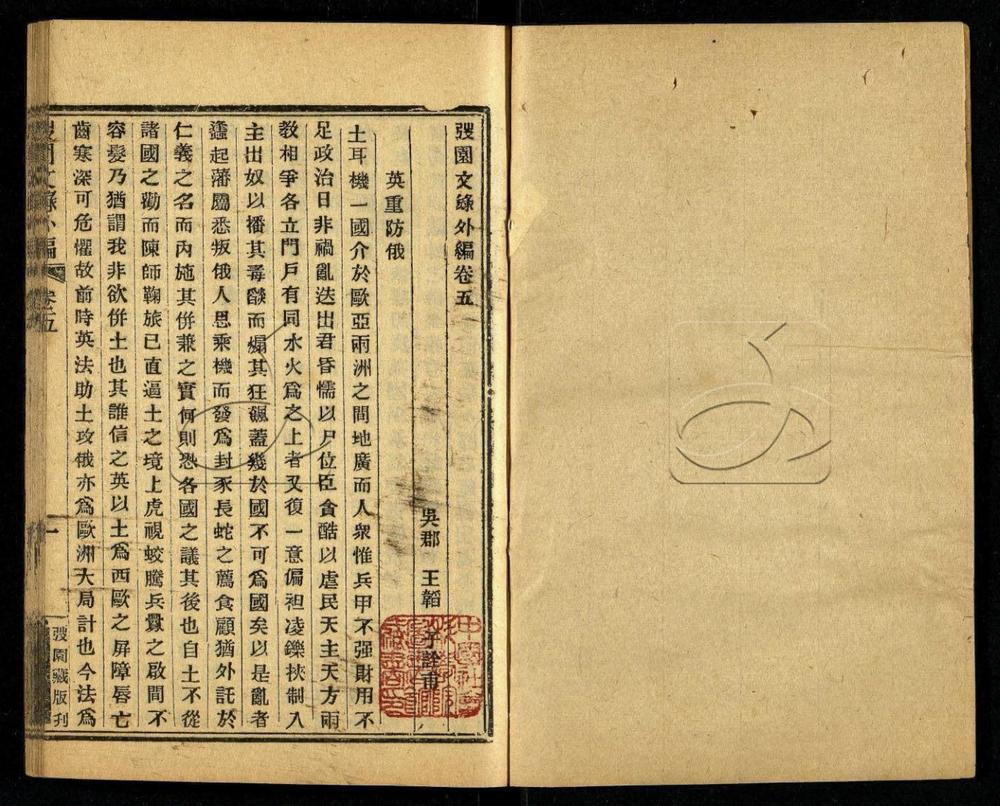 弢園文錄外編卷五
吳郡 王韜 子詮甫
英重防俄
土耳機一國介於歐亞兩洲之間地廣而人衆惟兵甲不强財用不
足政治日非禍亂迭出君昏懦以尸位臣貪酷以虐民天主天方兩
教相爭各立門戸有同水火爲之上者又復一意偏袒凌鑠挾制入
主出奴以播其毒燄而煽其狂飆蓋幾於國不可爲國矣以是亂者
蠭起藩屬悉叛俄人思乘機而發爲封豕長蛇之薦食顧猶外託於
仁義之名而內施其併兼之實何則恐各國之議其後也自土不從
諸國之勸而陳師鞠旅已直逼土之境上虎視蛟騰兵釁之啟間不
容髮乃猶謂我非欲併土也其誰信之英以土爲西歐之屏障唇亡
齒寒深可危懼故前時英法助土攻俄亦爲歐洲大局計也今法爲
弢園文錄外編 卷五
一
弢園藏版刊